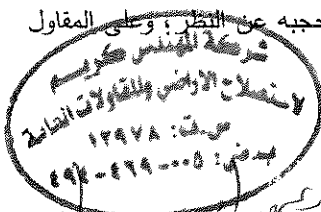 حجبه عن النظر ; وعلى المقاول
شركة المهندس كريم
لاستصلاح الاراضي والمقاولات العامة
س.ت: ١٢٩٧٨